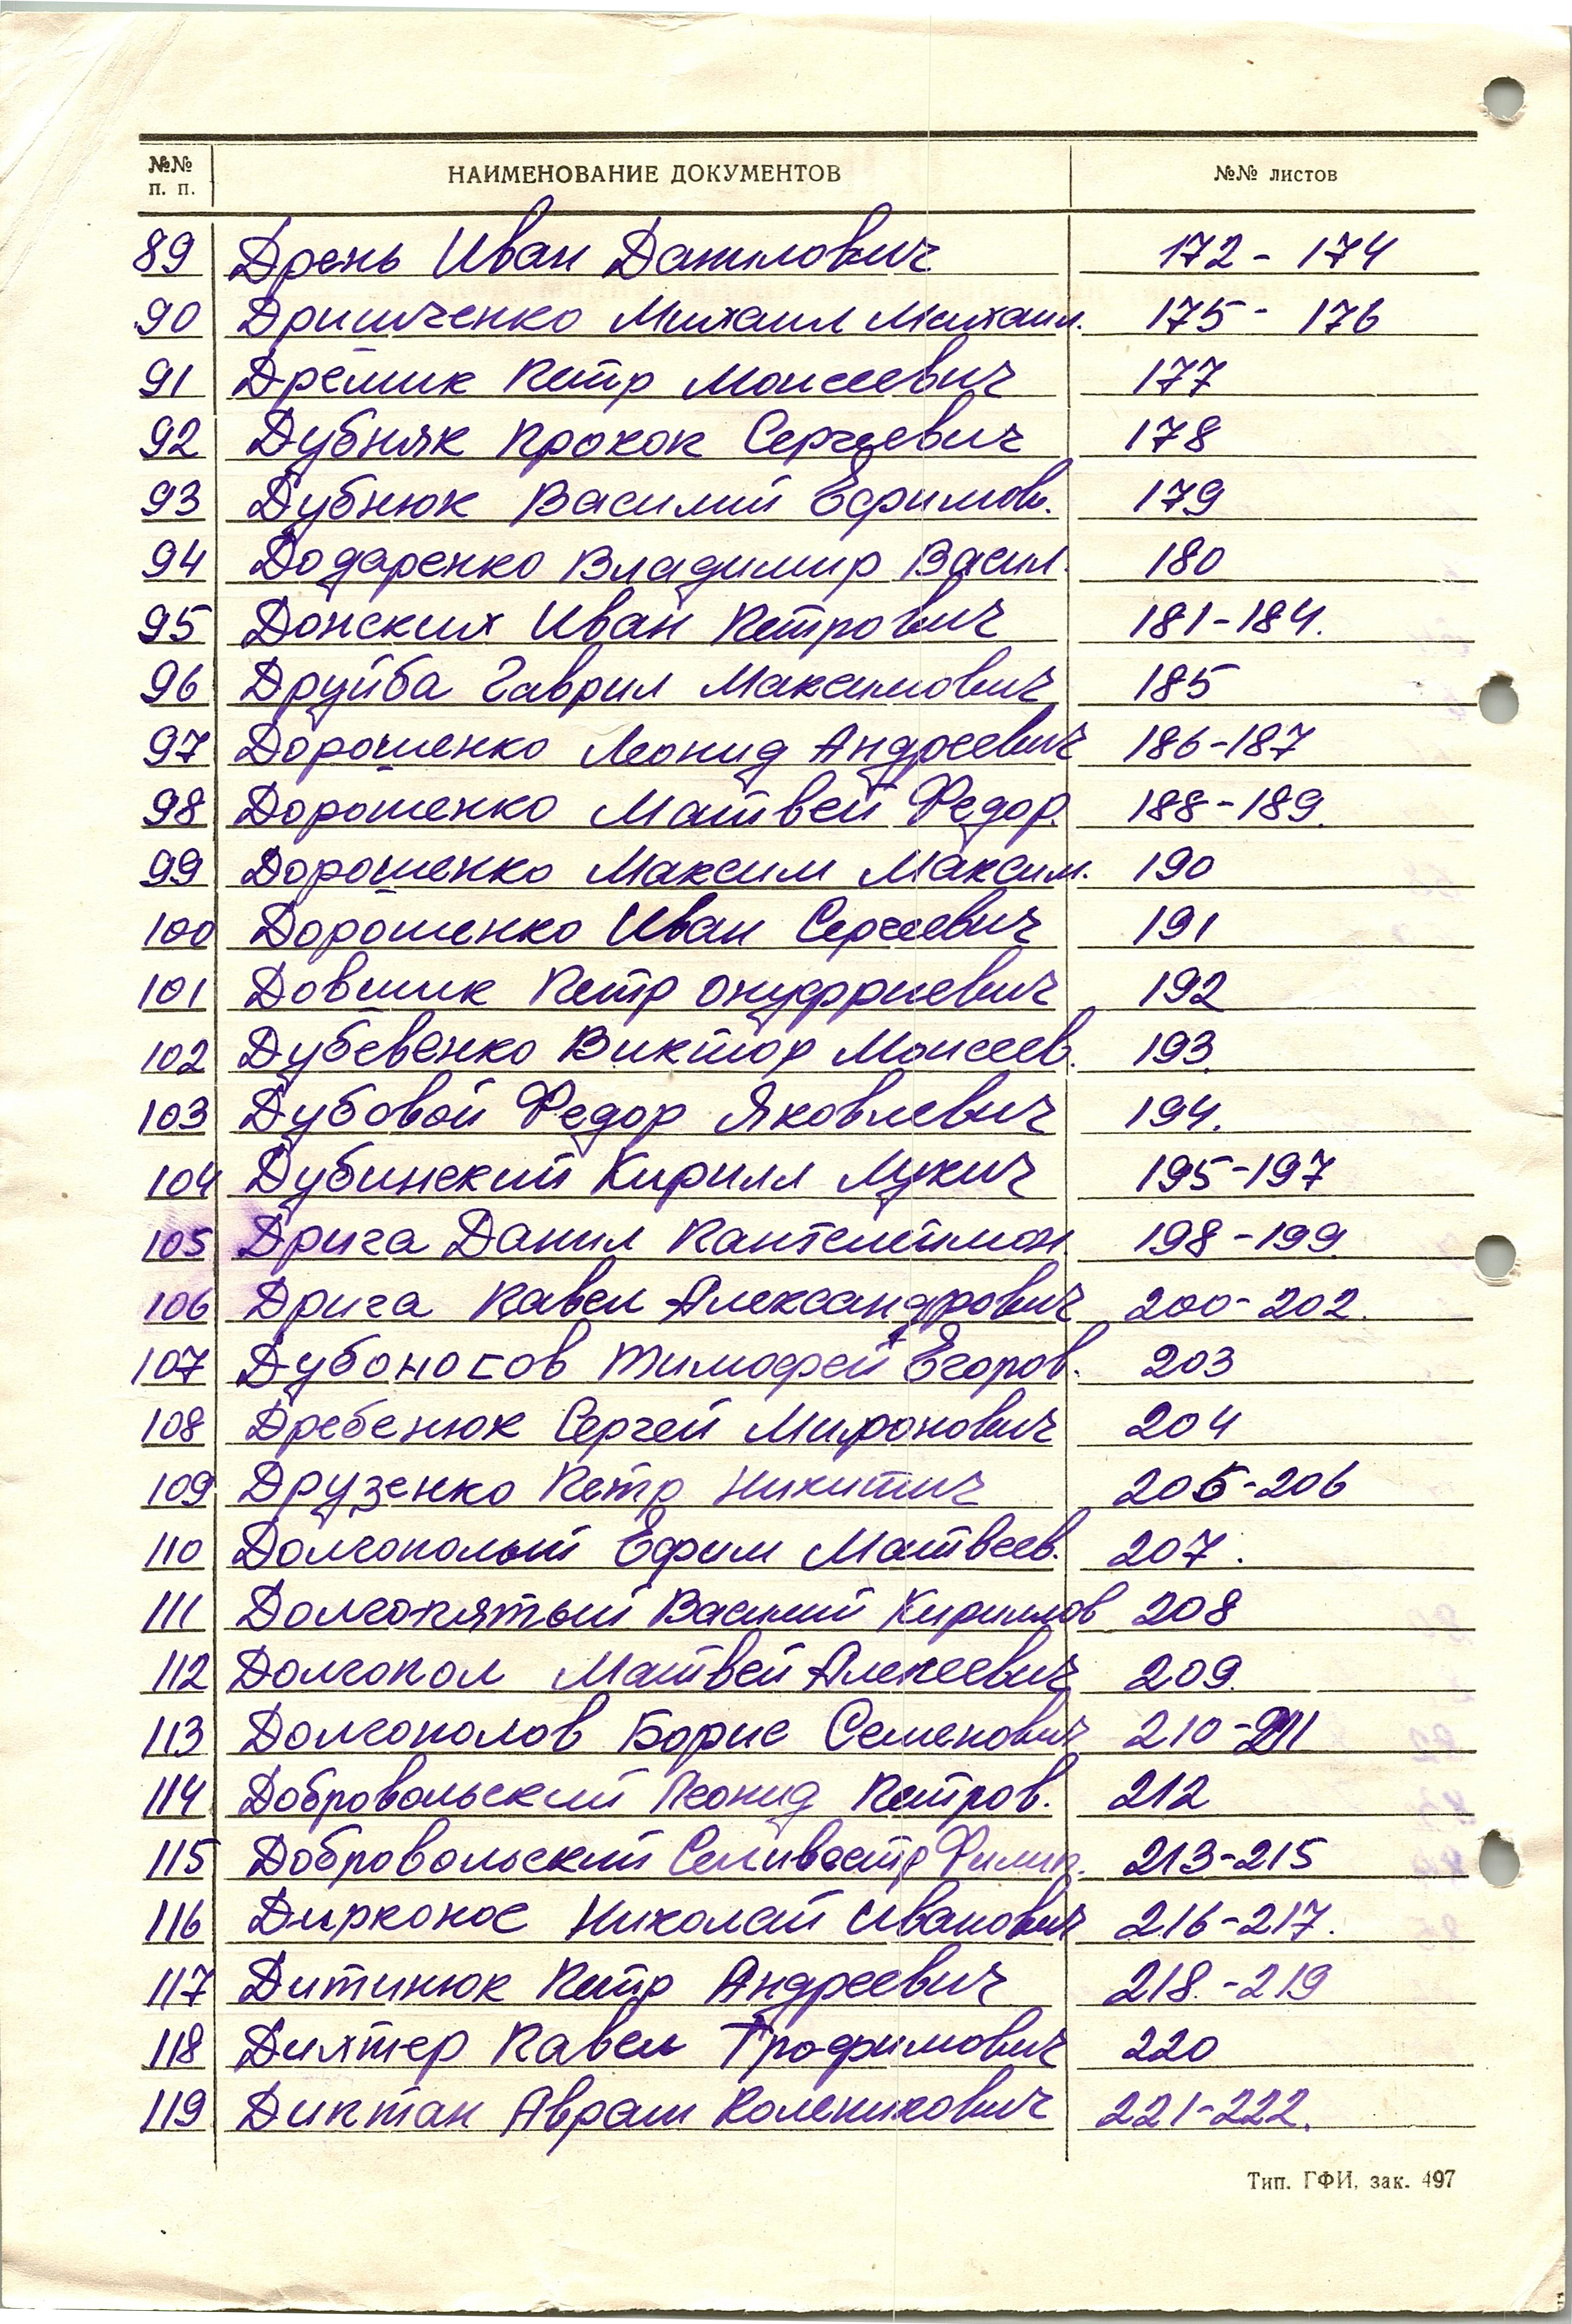 №№ п. п. НАИМЕНОВАНИЕ ДОКУМЕНТОВ №№ листов
89 Дрень Иван Данилович 172 - 174
90 Дришченко Михаил Михаил. 175 - 176
91 Дрёмик Петр Моисеевич 177
92 Дубняк Прокоп Сергеевич 178
93 Дубнюк Василий Ефимов. 179
94 Додаренко Владимир Васил. 180
95 Донских Иван Петрович 181-184.
96 Друйба Гаврил Максимович 185
97 Дорошенко Леонид Андреевич 186-187
98 Дорошенко Матвей Федор. 188-189.
99 Дорошенко Максим Максим. 190
100 Дорошенко Иван Сергеевич 191
101 Довшик Петр Онуфриевич 192
102 Дубевенко Виктор Моисеев. 193.
103 Дубовой Федор Яковлевич 194.
104 Дубинский Кирилл Лукич 195-197
105 Дрига Данил Пантелеймон. 198-199.
106 Дрига Павел Александрович 200-202.
107 Дубоносов Тимофей Егоров. 203
108 Дребенюк Сергей Миронович 204
109 Друзенко Петр Никитич 205-206
110 Долгополый Ефим Матвеев. 207.
111 Долгопятый Василий Кириллов 208
112 Долгопол Матвей Алексеевич 209.
113 Долгополов Борис Семенович 210-211
114 Добровольский Леонид Петров. 212
115 Добровольский Селивестр Филип. 213-215
116 Дирконос Николай Иванович 216-217.
117 Дитинюк Петр Андреевич 218.-219
118 Дихтер Павел Трофимович 220
119 Диптан Аврам Коленикович 221-222.
Тип. ГФИ, зак. 497